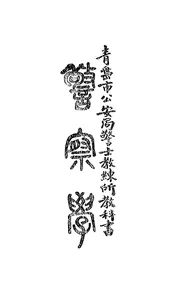 青島市公安局警士教練所教科書
警察學